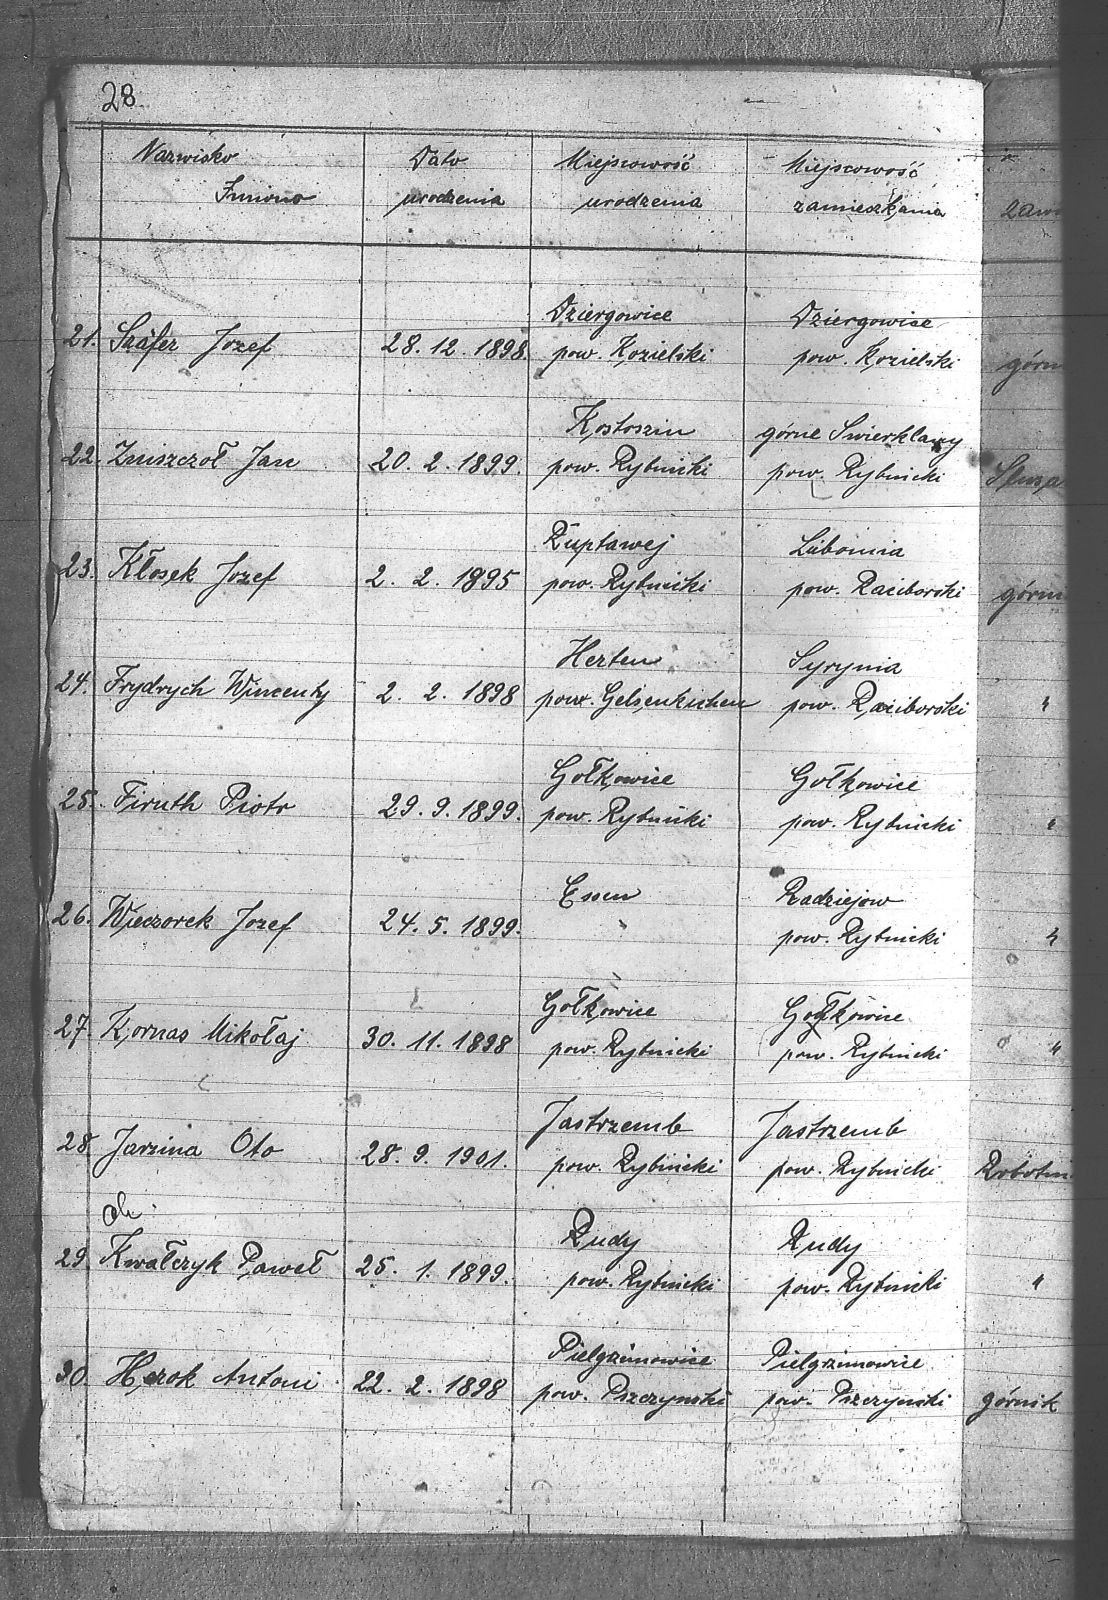 28
Nazwisko Data Miejscowość Miejscowość
Imiona urodzenia urodzenia zamieszkania zaw
Dziergowice Dziergowice
21. Szäfer Jozef 28.12.1898. pow. Kozielski pow. Kozielski górn
Kostoszin górne Swierklany
22. Zniszczoł Jan 20.2.1899. pow. Rybnicki pow. Rybnicki
Ruptawej Lubomia
23. Kłosek Jozef 2. 2. 1895 pow. Rybnicki pow. Raciborski górni
Herten Syrynia
24. Frydrych Wincenty 2. 2. 1898 pow. Gelsenkichen pow. Raciborski "
Gołkowice Gołkowice
25. Firuth Piotr 29.9.1899. pow. Rybnicki pow. Rybnicki "
Essen Radziejow
26. Wieczorek Jozef 24.5.1899. pow. Rybnicki "
Gołkowice Gołkowice
27. Kornas Mikołaj 30.11.1898 pow. Rybnicki pow. Rybnicki "
Jastrzemb Jastrzemb
28. Jarzina Oto 28.9.1901. pow. Rybnicki pow. Rybnicki Robotni
Rudy Rudy
29. Kwałczyk Paweł 25. 1. 1899. pow. Rybnicki pow. Rybnicki "
Pielgrzimowice Pielgrzimowice
30. Herok Antoni 22. 2. 1898 pow. Pszczynski pow. Pszczynski górnik